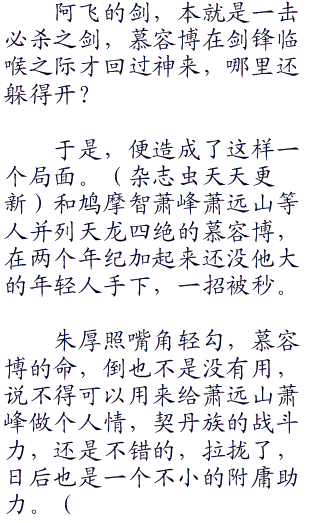 阿飞的剑，本就是一击
必杀之剑，慕容博在剑锋临
喉之际才回过神来，哪里还
躲得开？
于是，便造成了这样一
个局面。（杂志虫天天更
新）和鸠摩智萧峰萧远山等
人并列天龙四绝的慕容博，
在两个年纪加起来还没他大
的年轻人手下，一招被秒。
朱厚照嘴角轻勾，慕容
博的命，倒也不是没有用，
说不得可以用来给萧远山萧
峰做个人情，契丹族的战斗
力，还是不错的，拉拢了，
日后也是一个不小的附庸助
力。（